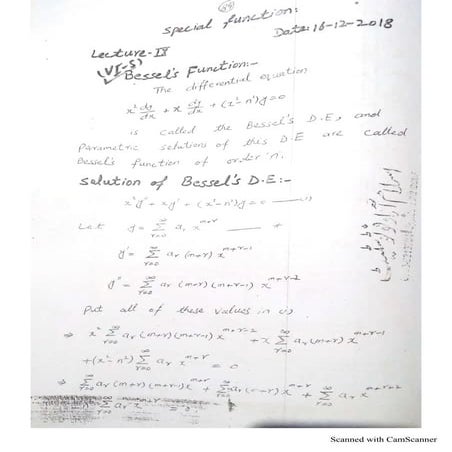 special function:
Date: 16-12-2018
Lecture-IX
(V.I-S)
Bessel's Function:-
The differential equation
x² dy/dx + x dy/dx + (x²-n²)y=0
is called the Bessel's D.E, and
Parametric solutions of this D.E are called
Bessel's function of order n.
Solution of Bessel's D.E:-
x²y″ + xy′ + (x²-n²)y=0 —(1)
Let y = Σ_{r=0}^∞ a_r x^{m+r}
y′ = Σ_{r=0}^∞ a_r (m+r) x^{m+r-1}
y″ = Σ_{r=0}^∞ a_r (m+r)(m+r-1) x^{m+r-2}
Put all of these values in (1)
⇒ x² Σ_{r=0}^∞ a_r (m+r)(m+r-1) x^{m+r-2} + x Σ_{r=0}^∞ a_r (m+r) x^{m+r-1}
+(x²-n²) Σ_{r=0}^∞ a_r x^{m+r} = 0
⇒ Σ_{r=0}^∞ a_r (m+r)(m+r-1) x^{m+r} + Σ_{r=0}^∞ a_r (m+r) x^{m+r} + Σ_{r=0}^∞ a_r x^{m+r+2}
Scanned with CamScanner